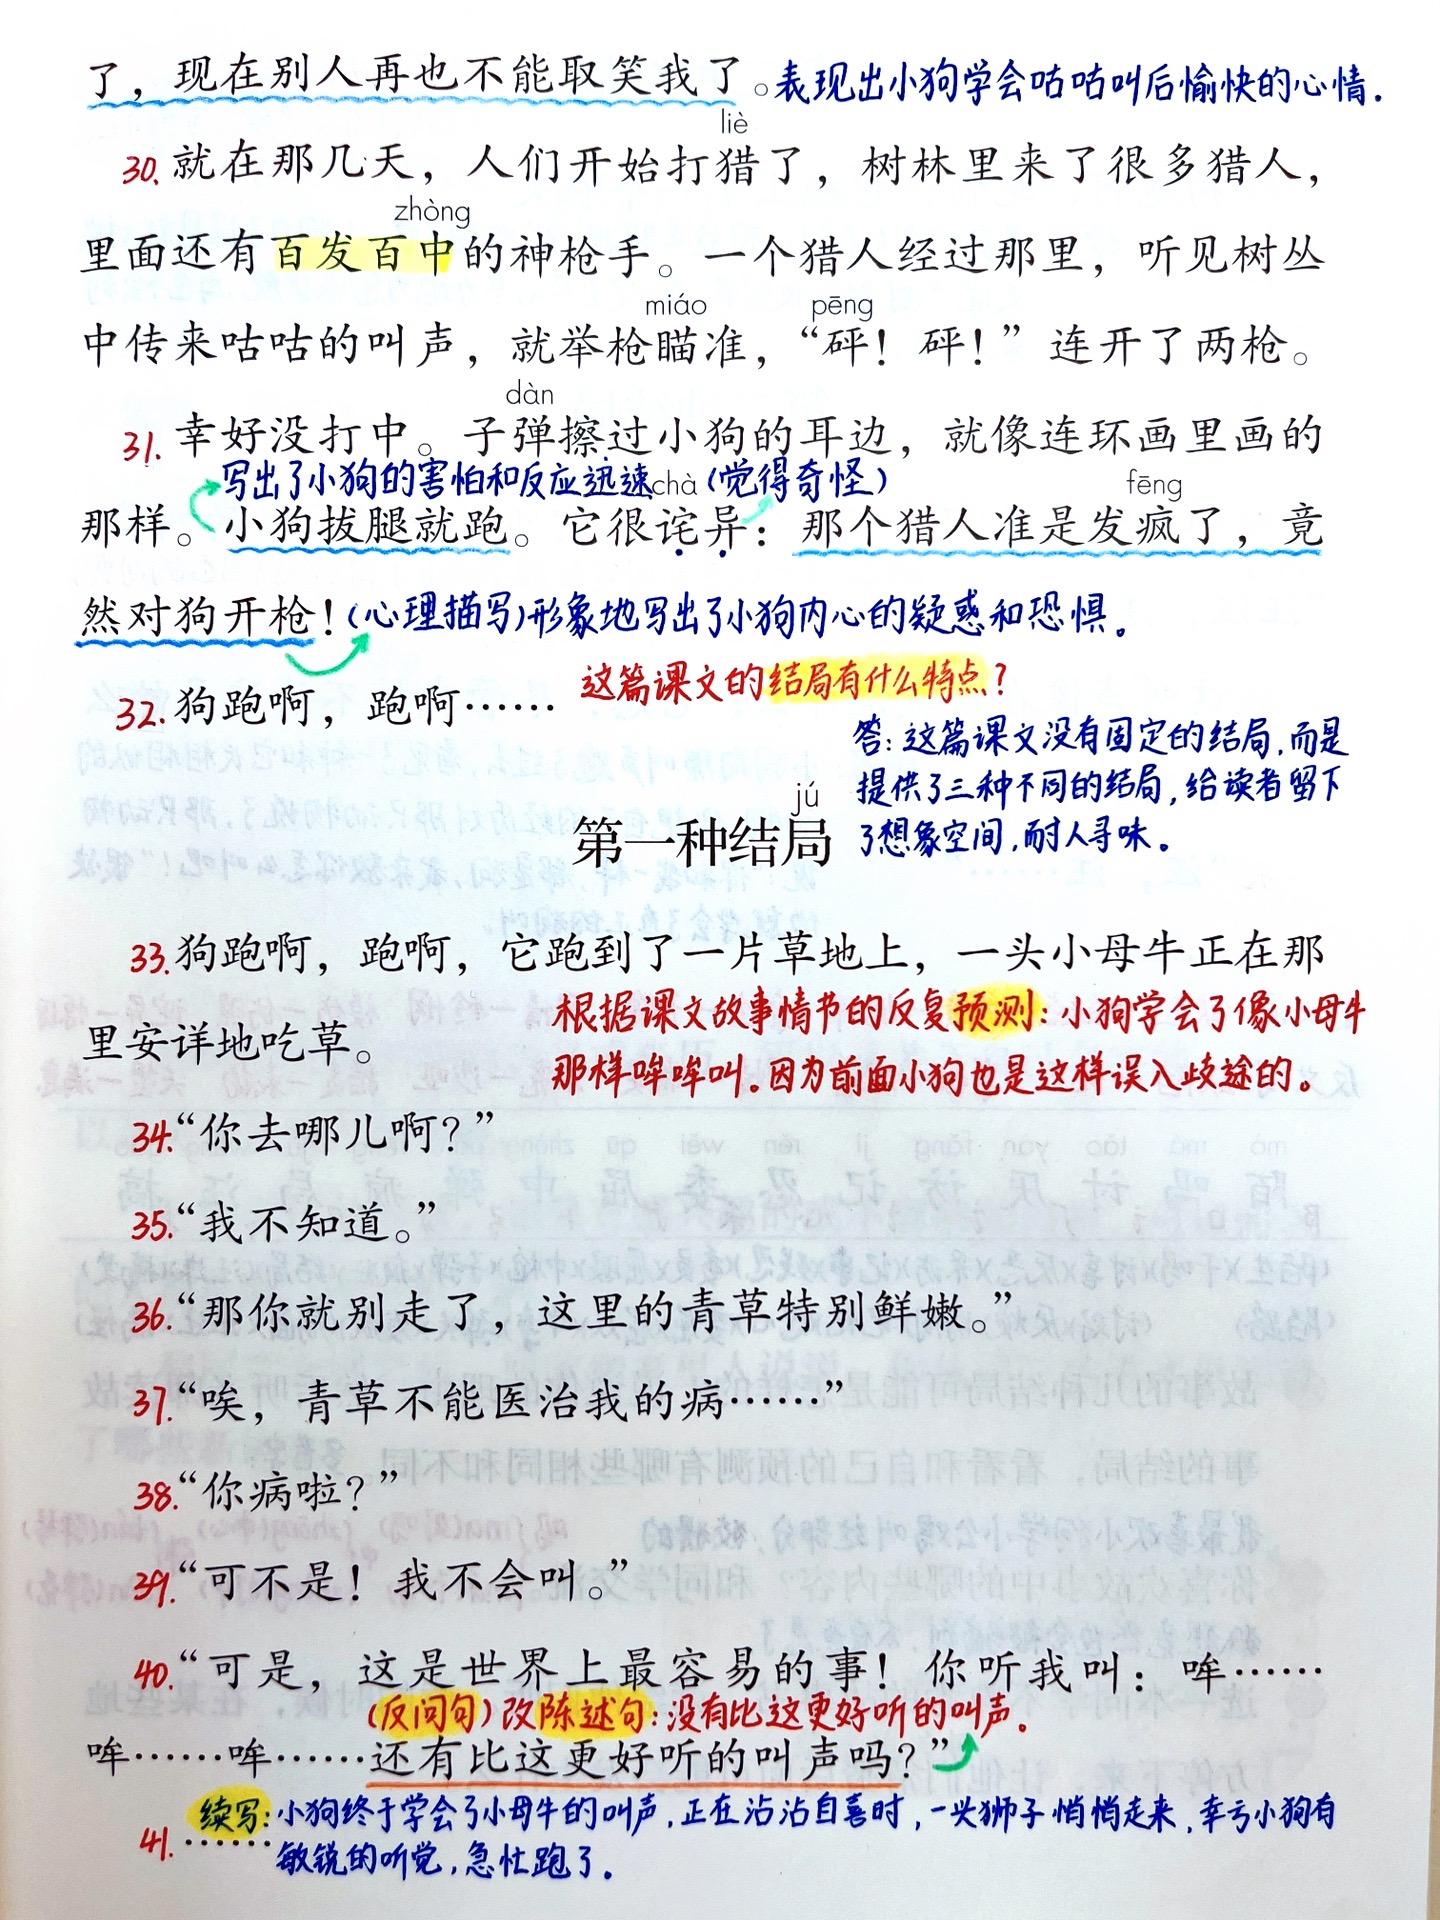 了，现在别人再也不能取笑我了。表现出小狗学会咕咕叫后愉快的心情.
liè
30.就在那几天，人们开始打猎了，树林里来了很多猎人，
zhòng
里面还有百发百中的神枪手。一个猎人经过那里，听见树丛
miáo pēng
中传来咕咕的叫声，就举枪瞄准，“砰！砰！”连开了两枪。
dàn
31.幸好没打中。子弹擦过小狗的耳边，就像连环画里画的
写出了小狗的害怕和反应迅速 chà (觉得奇怪) fēng
那样。小狗拔腿就跑。它很诧异：那个猎人准是发疯了，竟
然对狗开枪！(心理描写)形象地写出了小狗内心的疑惑和恐惧。
这篇课文的结局有什么特点?
32.狗跑啊，跑啊……
答:这篇课文没有固定的结局,而是
提供了三种不同的结局,给读者留下
jú
第一种结局
了想象空间,耐人寻味。
33.狗跑啊，跑啊，它跑到了一片草地上，一头小母牛正在那
根据课文故事情节的反复预测:小狗学会了像小母牛
里安详地吃草。
那样哞哞叫.因为前面小狗也是这样误入歧途的。
34.“你去哪儿啊？”
35.“我不知道。”
36.“那你就别走了，这里的青草特别鲜嫩。”
37.“唉，青草不能医治我的病……”
38.“你病啦？”
39.“可不是！我不会叫。”
40.“可是，这是世界上最容易的事！你听我叫：哞……
(反问句)改陈述句:没有比这更好听的叫声.
哞……哞……还有比这更好听的叫声吗？”
续写:小狗终于学会了小母牛的叫声,正在沾沾自喜时,一头狮子悄悄走来,幸亏小狗有
41.……敏锐的听觉,急忙跑了.